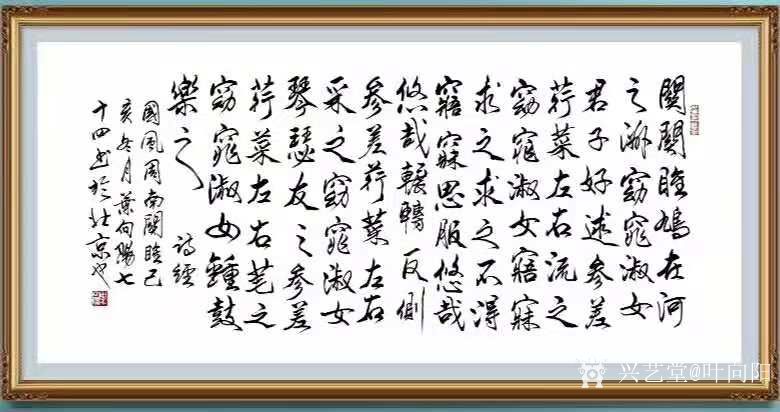 關關雎鳩在河
之洲窈窕淑女
君子好逑參差
荇菜左右流之
窈窕淑女寤寐
求之求之不得
寤寐思服悠哉
悠哉輾轉反側
參差荇菜左右
采之窈窕淑女
琴瑟友之參差
荇菜左右芼之
窈窕淑女鍾鼓
樂之
詩經
國風周南關雎己
亥冬月葉向陽七
十四書於北京也
兴艺堂@叶向阳